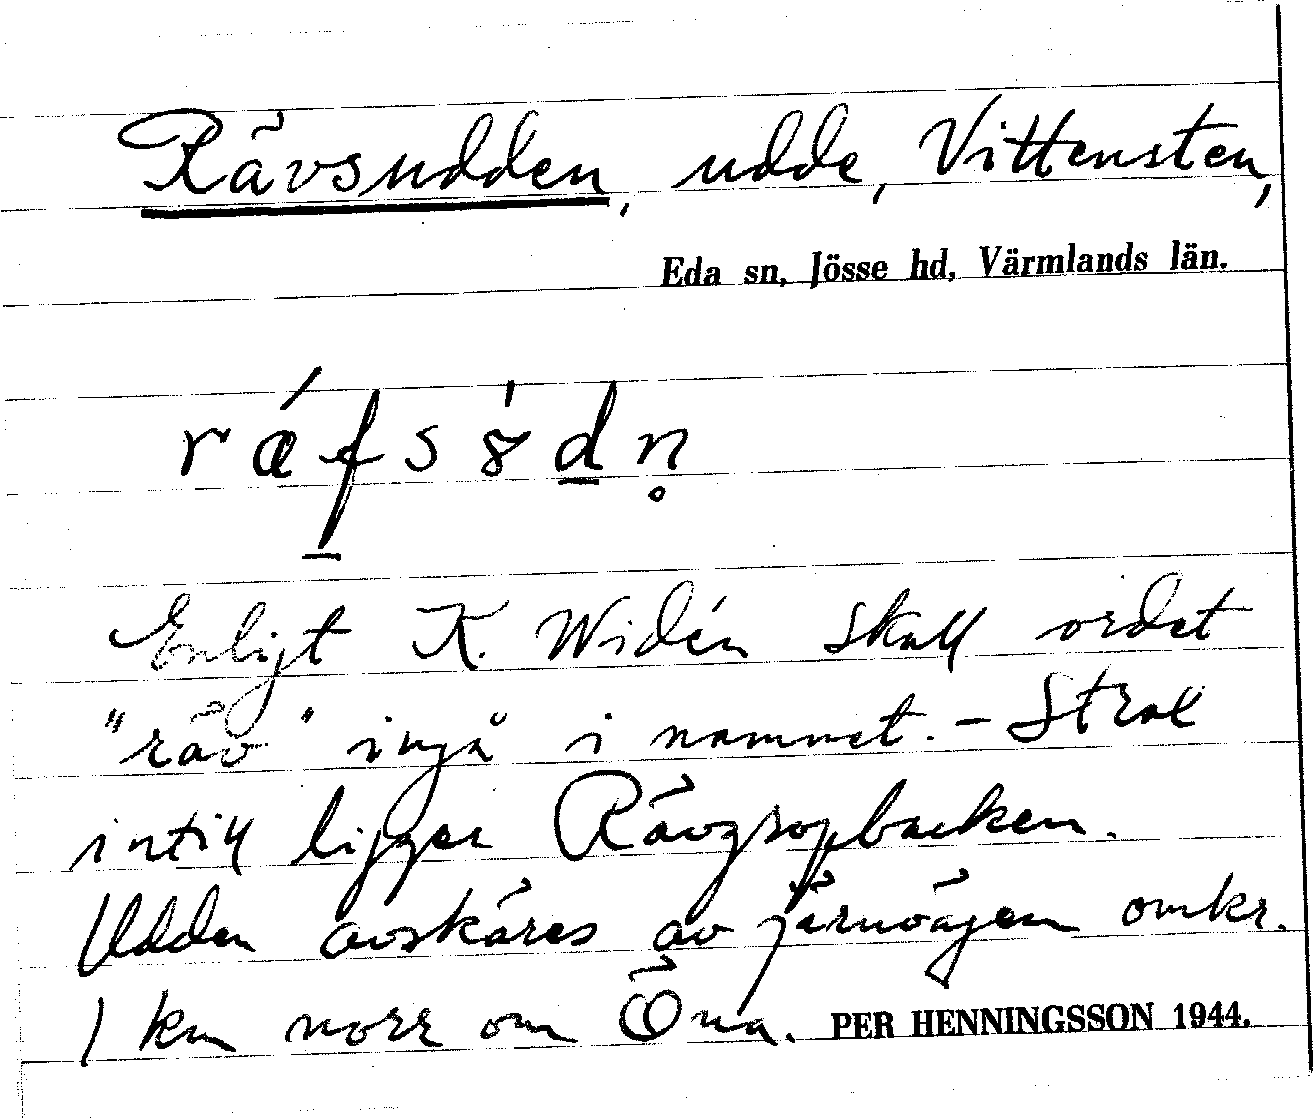 Rävsudden, udde, Vittensten,
Eda sn, Jösse hd, Värmlands län.
ráfsödn̥
Enligt K. Widén skall ordet
"räv" ingå i namnet. – Strax
intill ligger Rävgropbacken.
Udden avskäres av järnvägen omkr.
1 km norr om Öna. PER HENNINGSSON 1944.